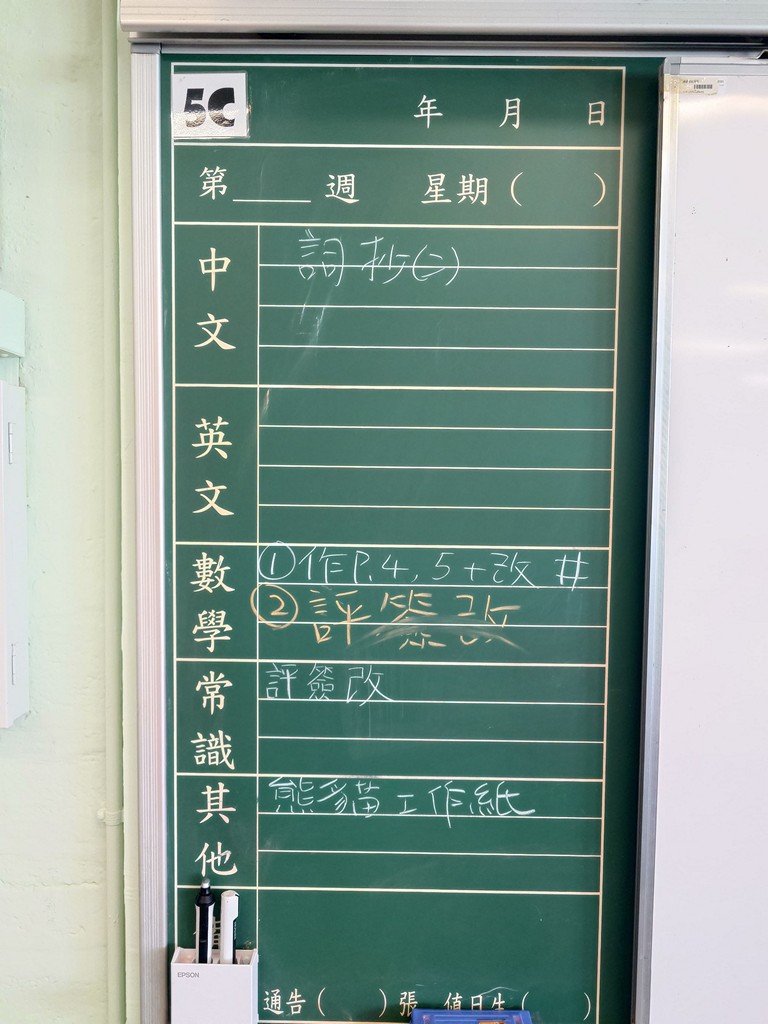 5C
年 月 日
第____週 星期( )
中文 詞抄(二)
英文
數學 ①作P.4,5+改 #
②評簽改
常識 評簽改
其他 熊貓工作紙
EPSON
通告( )張 值日生( )